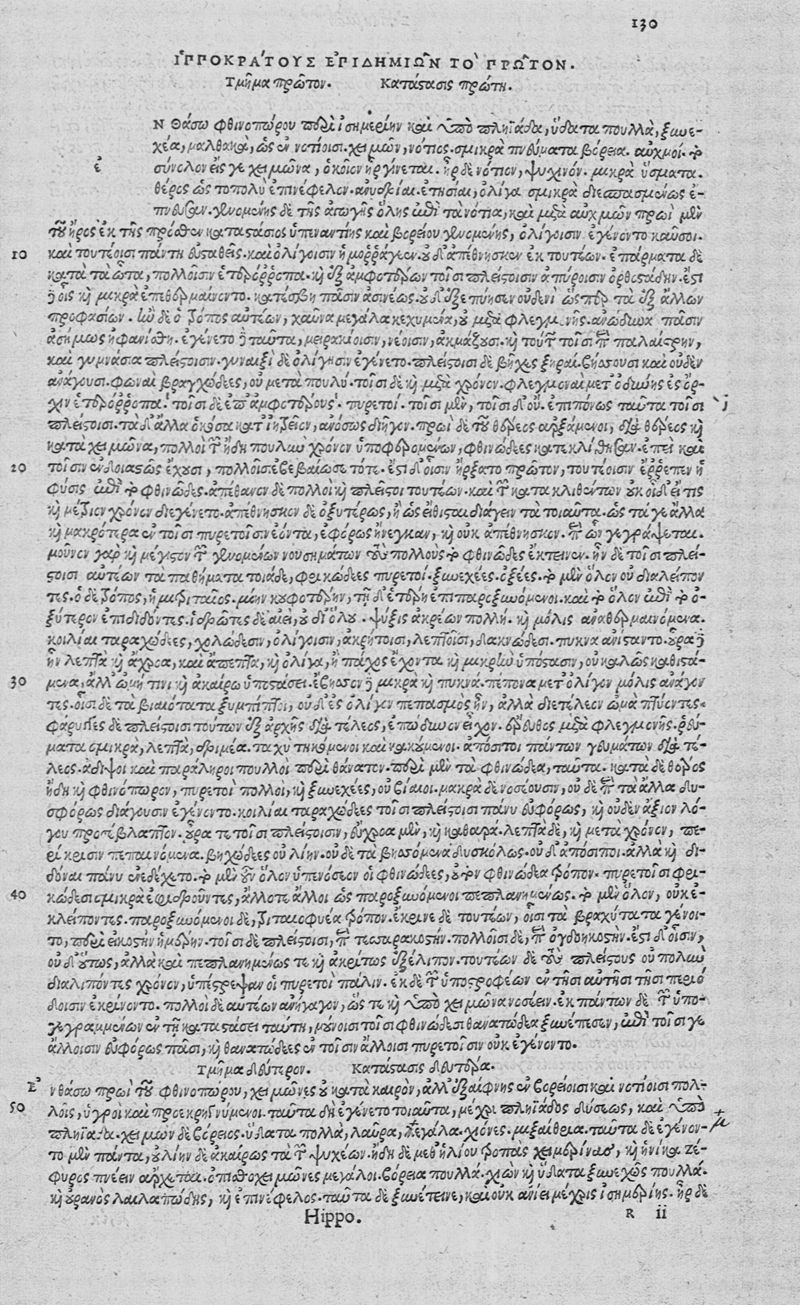 130
ἹΠΠΟΚΡΆΤΟΥΣ ἘΠΙΔΗΜΙΩ͂Ν ΤΟ` ΠΡΩ͂ΤΟΝ.
Τμῆμα πρῶτον. Κατάστασις πρώτη.
Ν Θάσω φθινοπώρου περὶ ἰσημερίην καὶ ὑπὸ πληϊάδα, ὕδατα πουλλὰ, ξυνε-
χέα, μαλθακὰ, ὡς ἐν νοτίοισι. χειμὼν, νότιος. σμικρὰ πνεύματα βόρεια. αὐχμοί. τὸ
ἐ
σύνολον εἴς γε χειμῶνα, ὁκοῖον ἦρ γίνεται. ἦρ δὲ νότιον, ψυχινόν. μικρὰ ὕσματα.
θέρος ὡς τοπολὺ ἐπινέφελον. ἀνυδρίαι. ἐτησίαι, ὀλίγα σμικρὰ διεσπασμένως ἔ-
πνευσαν. γενομένης δὲ τῆς ἀγωγῆς ὅλης ἐπὶ τὰ νότια, καὶ μετὰ αὐχμῶν πρωῒ μὲν
τοῦ ἦρος ἐκ τῆς πρόσθεν καταστάσιος ὑπεναντίης καὶ βορείου γενομένης, ὀλίγοισιν ἐγένοντο καῦσοι.
10
καὶ τουτέοισι πάντη εὐσταθεῖς. καὶ ὀλίγοισιν ᾑμορράγεεν. οὐδ' ἀπέθνησκον ἐκ τουτέων. ἐπάρματα δὲ
κατὰ τὰ ὦτα, πολλοῖσιν ἑτερόρροπα. καὶ ἐξ ἀμφοτέρων τοῖσι πλείστοισιν ἀπύροισιν ὀρθοστάδην. ἔστι
δὲ οἷς καὶ μικρὰ ἐπεθερμαίνοντο. κατέσβη πᾶσιν ἀσινέως. οὐδ' ἐξεπύησεν οὐδενὶ ὥσπερ τὰ ἐξ ἄλλων
προφασίων. ἦν δὲ ὁ τρόπος αὐτέων, χαῦνα μεγάλα κεχυμένα, οὐ μετὰ φλεγμονῆς. ἀνώδυνα πᾶσιν
ἀσήμως ἠφανίσθη. ἐγένετο δὲ ταῦτα, μειρακίοισιν, νέοισιν, ἀκμάζουσι. καὶ τουτέων τοῖσι περὶ παλαίστρην,
καὶ γυμνάσια πλείστοισιν. γυναιξὶ δὲ ὀλίγησιν ἐγένετο. πλείστοισι δὲ βῆχες ξηραί. βήσσουσι καὶ οὐδὲν
ἀνάγουσι. φωναὶ βραγχώδεες, οὐ μετὰ πουλύ. τοῖσι δὲ καὶ μετὰ χρόνον. φλεγμοναὶ μετ' ὀδύνης ἐς ὄρ-
χιν ἑτερόρροπα. τοῖσι δὲ ἐς ἀμφοτέρους. πυρετοί. τοῖσι μὲν, τοῖσι δ' οὔ. ἐπιπόνως ταῦτα τοῖσι
πλείστοισι. τὰ δ' ἄλλα ὁκόσα κατ' ἰητρεῖον, ἀνόσως διῆγον. πρωῒ δὲ τοῦ θέρεος ἀρξάμενοι, διὰ θέρεος καὶ
κατὰ χειμῶνα, πολλοὶ τῶν ἤδη πουλὺν χρόνον ὑποφερομένων, φθινώδεες κατεκλίθησαν. ἐπεὶ καὶ
20
τοῖσιν ἐνδοιαστῶς ἔχουσι, πολλοῖσι ἐβεβαίωσε τότε. ἔστι δ' οἷσιν ἤρξατο πρῶτον, τουτέοισιν ἔρρεπεν ἡ
φύσις ἐπὶ τὸ φθινῶδες. ἀπέθανον δὲ πολλοὶ καὶ πλεῖστοι τουτέων. καὶ τῶν κατακλιθέντων οὐκ οἶδ' εἴ τις
καὶ μέτριον χρόνον διεγένετο. ἀπέθνησκον δὲ ὀξυτέρως, ἢ ὡς εἴθισται διάγειν τὰ τοιαῦτα. ὡς τά γε ἄλλα
καὶ μακρότερα ἐν τοῖσι πυρετοῖσιν ἐόντα, εὐφόρως ἤνεγκαν, καὶ οὐκ ἀπέθνησκον. περὶ ὧν γεγράψεται.
μοῦνον γὰρ καὶ μέγιστον τῶν γενομένων νουσημάτων τοὺς πολλοὺς τὸ φθινῶδες ἔκτεινεν. ἦν δὲ τοῖσι πλεί-
στοισι αὐτέων τὰ παθήματα τοιάδε, φρικώδεες πυρετοί. ξυνεχέες. ὀξέες. τὸ μὲν ὅλον οὐ διαλείπον
τες. ὁ δὲ τρόπος, ἡμιτριταῖος. μίην κουφοτέρην, τῇ δ' ἑτέρῃ ἐπιπαροξυνόμενοι. καὶ τὸ ὅλον ἐπὶ τὸ ὀ-
ξύτερον ἐπιδιδόντες. ἱδρῶτες δὲ αἰεὶ, οὐ δι' ὅλου. ψύξις ἀκρέων πολλή. καὶ μόλις ἀναθερμαινόμενα.
κοιλίαι ταραχώδεες, χολώδεσιν, ὀλίγοισιν, ἀκρήτοισι, λεπτοῖσι, δακνώδεσι. πυκνὰ ἀνίσταντο. οὖρα δὲ
ἦν λεπτὰ καὶ ἄχροα, καὶ ἄπεπτα, καὶ ὀλίγα, ἢ πάχος ἔχοντα καὶ μικρὴν ὑπόστασιν, οὐ καλῶς καθιστά-
30
μενα, ἀλλ' ὠμῇ τινι καὶ ἀκαίρω ὑποστάσει. ἔβησσον δὲ μικρὰ καὶ πυκνὰ. πέπονα μετ' ὀλίγον μόλις ἀνάγον
τες. οἷσι δὲ τὰ βιαιότατα ξυμπίπτοι, οὐδ' ἐς ὀλίγον πεπασμὸς ἦν, ἀλλὰ διετέλεον ὠμὰ πτύοντες.
φάρυγγες δὲ πλείστοισι τούτων ἐξ ἀρχῆς διὰ τέλεος, ἐπώδυνον εἶχον. ἔρευθος μετὰ φλεγμονῆς. ῥεύ-
ματα σμικρὰ, λεπτὰ, δριμέα. ταχὺ τηκόμενοι καὶ κακούμενοι. ἀπόσιτοι πάντων γευμάτων διὰ τέ-
λεος. ἄδιψοι καὶ παράληροι πουλλοὶ περὶ θάνατον. περὶ μὲν τὰ φθινώδεα, ταῦτα. κατὰ δὲ θέρος
ἤδη καὶ φθινόπωρον, πυρετοὶ πολλοὶ, καὶ ξυνεχέες, οὐ βίαιοι. μακρὰ δὲ νοσέουσιν, οὐδὲ περὶ τὰ ἄλλα δυ-
σφόρως διάγουσιν ἐγένοντο. κοιλίαι ταραχώδεες τοῖσι πλείστοισι πάνυ εὐφόρως, καὶ οὐδὲν ἄξιον λό-
γου προσέβλαπτον. οὖρα τε τοῖσι πλείστοισιν, εὔχροα μὲν, καὶ καθαρὰ. λεπτὰ δὲ, καὶ μετὰ χρόνον, πε-
ρὶ κρίσιν πεπαινόμενα. βηχώδεες οὐ λίην. οὐδὲ τὰ βησσόμενα δυσκόλως. οὐδ' ἀπόσιτοι. ἀλλὰ καὶ δι-
δόναι πάνυ ἐνεδέχετο. τὸ μὲν οὖν ὅλον ὑπενόσεον οἱ φθινώδεες, οὐ τὸν φθινώδεα τρόπον. πυρετοῖσι φρι-
40
κώδεσι σμικρὰ ἐφιδροῦντες, ἄλλοτε ἄλλοι ὡς παροξυνόμενοι πεπλανημένως. τὸ μὲν ὅλον, οὐκ ἐ-
κλείποντες. παροξυνόμενοι δὲ, τριταιοφυέα τρόπον. ἔκρινε δὲ τουτέων, οἷσι τὰ βραχύτατα γένοι-
το, περὶ εἰκοστὴν ἡμέρην. τοῖσι δὲ πλείστοισι, περὶ τεσσαρακοστήν. πολλοῖσι δὲ, περὶ ὀγδοηκοστήν. ἔστι δ' οἷσιν,
οὐδ' οὕτως, ἀλλὰ καὶ πεπλανημένως τε καὶ ἀκρίτως ἐξέλιπον. τουτέων δὲ τοὺς πλείστους οὐ πολὺν
διαλιπόντες χρόνον, ὑπέστρεψαν οἱ πυρετοὶ πάλιν. ἐκ δὲ τῶν ὑποστροφέων ἐν τῆσι αὐτῆσι τῆσι περιό
δοισιν ἐκρίνοντο. πολλοὶ δὲ αὐτέων ἀνήγαγον, ὥς τε καὶ ὑπὸ χειμῶνα νοσέειν. ἐκ πάντων δὲ τῶν ὑπο-
γεγραμμένων ἐν τῇ καταστάσει ταύτῃ, μόνοισι τοῖσι φθινώδεσι θανατώδεα ξυνέπεσεν, ἐπὶ τοῖσί γε
ἄλλοισιν εὐφόρως πᾶσι, καὶ θανατώδεες ἐν τοῖσιν ἄλλοισι πυρετοῖσιν οὐκ ἐγένοντο.
Τμῆμα δεύτερον. Κατάστασις δευτέρα.
Ἐν θάσω πρωῒ τοῦ φθινοπώρου, χειμῶνες οὐ κατὰ καιρὸν, ἀλλ' ἐξαίφνης ἐν βορείοισι καὶ νοτίοισι πολ-
50
λοῖς, ὑγροὶ καὶ προεκρηγνύμενοι. ταῦτα δὴ ἐγένετο τοιαῦτα, μέχρι πληϊάδος δύσεως, καὶ ὑπὸ
πληϊάδα. χειμὼν δὲ βόρειος. ὕδατα πολλὰ, λαῦρα, μεγάλα. χιόνες. μιξαίθρια. ταῦτα δὲ ἐγένον-
το μὲν πάντα, οὐ λίην δὲ ἀκαίρως τὰ τῶν ψυχέων. ἤδη δὲ μεθ' ἡλίου τροπὰς χειμερινὰς, καὶ ἡνίκα ζέ-
φυρος πνέειν ἄρχεται. ὀπισθοχειμῶνες μεγάλοι. βόρεια πουλλά. χιὼν καὶ ὕδατα ξυνεχῶς πουλλά.
καὶ οὐρανὸς λαιλαπώδης, καὶ ἐπινέφελος. ταῦτα δὲ ξυνέτεινε, καὶ οὐκ ἀνίει μέχρις ἰσημερίης. ἦρ δὲ
Hippo. R ii